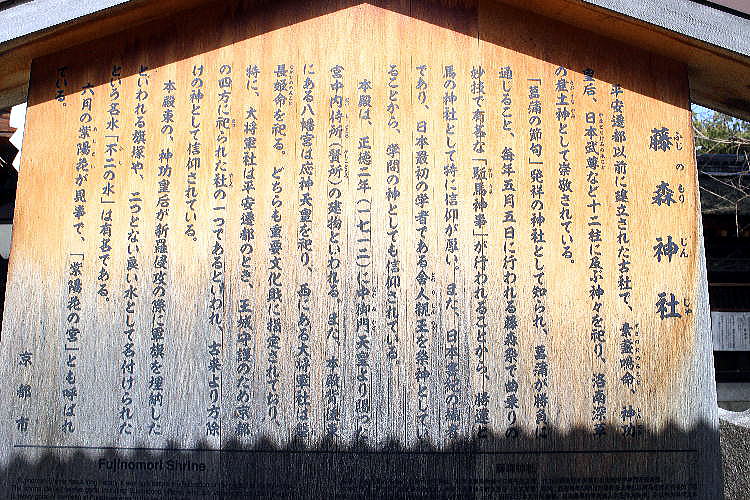 藤森神社
ふじのもりじんじゃ
平安遷都以前に建立された古社で、素盞嗚命、神功
皇后、日本武尊など十二柱に及ぶ神々を祀り、洛南深草
の産土神として崇敬されている。
「菖蒲の節句」発祥の神社として知られ、菖蒲が勝負に
通じること、毎年五月五日に行われる藤森祭で曲乗りの
妙技で有名な「駈馬神事」が行われることから、勝運と
馬の神社として特に信仰が厚い。また、日本書紀の編者
であり、日本最初の学者である舎人親王を祭神としてい
ることから、学問の神としても信仰されている。
本殿は、正徳二年(一七一二)に中御門天皇より賜った
宮中内侍所(賢所)の建物といわれる。また、本殿背後東
にある八幡宮は応神天皇を祀り、西にある大将軍社は磐
長姫命を祀る。どちらも重要文化財に指定されており、
特に、大将軍社は平安遷都のとき、王城守護のため京都
の四方に祀られた社の一つであるといわれ、古来より方除
けの神として信仰されている。
本殿東の、神功皇后が新羅侵攻の際に軍旗を埋納した
といわれる旗塚や、二つとない良い水として名付けられた
という名水「不二の水」は有名である。
六月の紫陽花が見事で、「紫陽花の宮」とも呼ばれ
ている。
京都市
Fujinomori Shrine